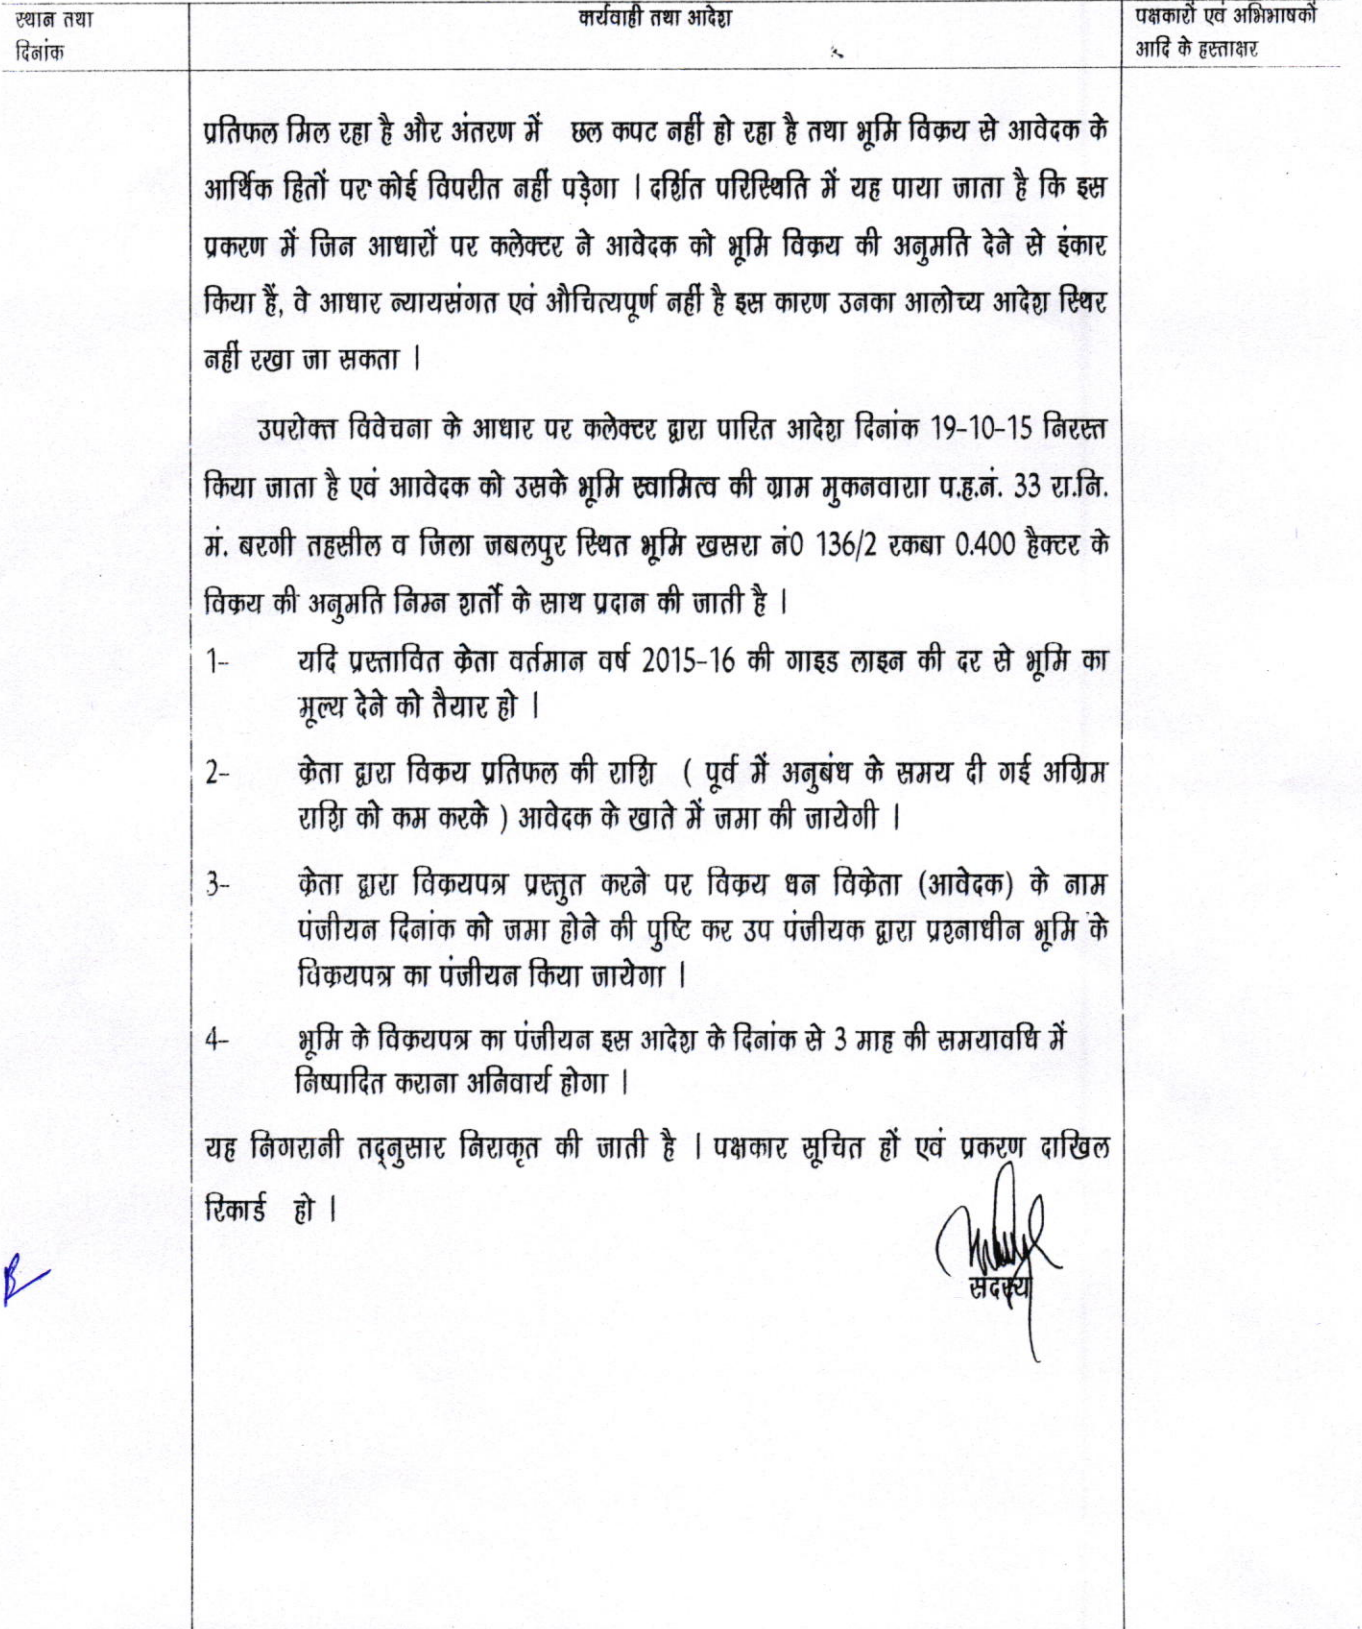 स्थान तथा
दिनांक
कार्यवाही तथा आदेश
पक्षकारों एवं अभिभाषकों
आदि के हस्ताक्षर
प्रतिफल मिल रहा है और अंतरण में छल कपट नहीं हो रहा है तथा भूमि विक्रय से आवेदक के
आर्थिक हितों पर कोई विपरीत नहीं पड़ेगा । दर्शित परिस्थिति में यह पाया जाता है कि इस
प्रकरण में जिन आधारों पर कलेक्टर ने आवेदक को भूमि विक्रय की अनुमति देने से इंकार
किया हैं, वे आधार न्यायसंगत एवं औचित्यपूर्ण नहीं है इस कारण उनका आलोच्य आदेश स्थिर
नहीं रखा जा सकता ।
उपरोक्त विवेचना के आधार पर कलेक्टर द्वारा पारित आदेश दिनांक 19-10-15 निरस्त
किया जाता है एवं आावेदक को उसके भूमि स्वामित्व की ग्राम मुकनवारा प.ह.नं. 33 रा.नि.
मं. बरगी तहसील व जिला जबलपुर स्थित भूमि खसरा नं0 136/2 रकबा 0.400 हैक्टर के
विक्रय की अनुमति निम्न शर्तों के साथ प्रदान की जाती है ।
1- यदि प्रस्तावित क्रेता वर्तमान वर्ष 2015-16 की गाइड लाइन की दर से भूमि का
मूल्य देने को तैयार हो ।
2- क्रेता द्वारा विक्रय प्रतिफल की राशि ( पूर्व में अनुबंध के समय दी गई अग्रिम
राशि को कम करके ) आवेदक के खाते में जमा की जायेगी ।
3- क्रेता द्वारा विक्रयपत्र प्रस्तुत करने पर विक्रय धन विक्रेता (आवेदक) के नाम
पंजीयन दिनांक को जमा होने की पुष्टि कर उप पंजीयक द्वारा प्रश्नाधीन भूमि के
विक्रयपत्र का पंजीयन किया जायेगा ।
4- भूमि के विक्रयपत्र का पंजीयन इस आदेश के दिनांक से 3 माह की समयावधि में
निष्पादित कराना अनिवार्य होगा ।
यह निगरानी तद्नुसार निराकृत की जाती है । पक्षकार सूचित हों एवं प्रकरण दाखिल
रिकार्ड हो ।
सदस्य